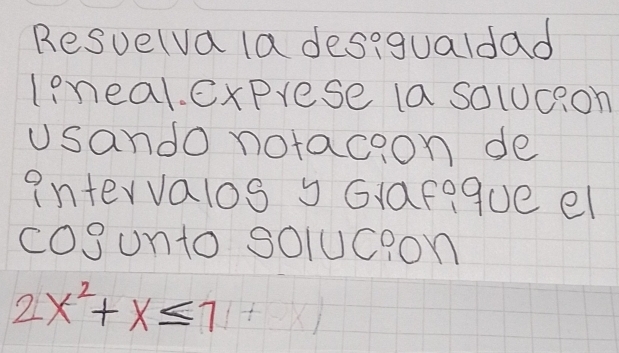 Resuelva la desigualdad
lineal. Exprese la solucion
usando notacion de
intervalos y Grafique el
cojunto solucion
2x² + x ≤ 7